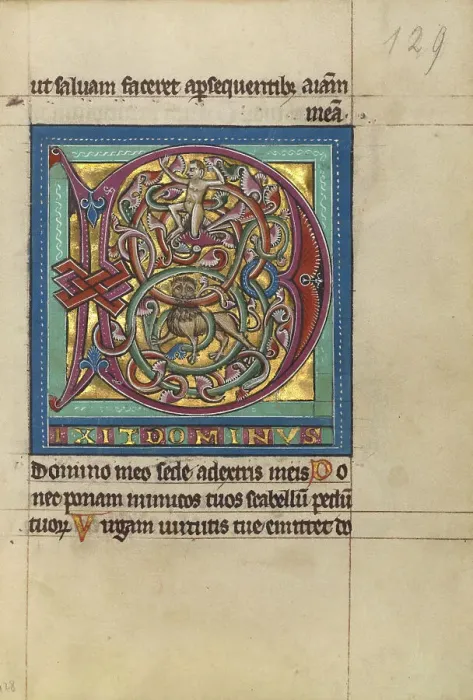 129
ut saluam faceret apsequentibꝫ aīam
meā.
D
IXIT DOMINVS
Domino meo sede adextris meis Do
nec ponam inimicos tuos scabellū pedū
tuoꝝ Virgam uirtutis tue emittet do